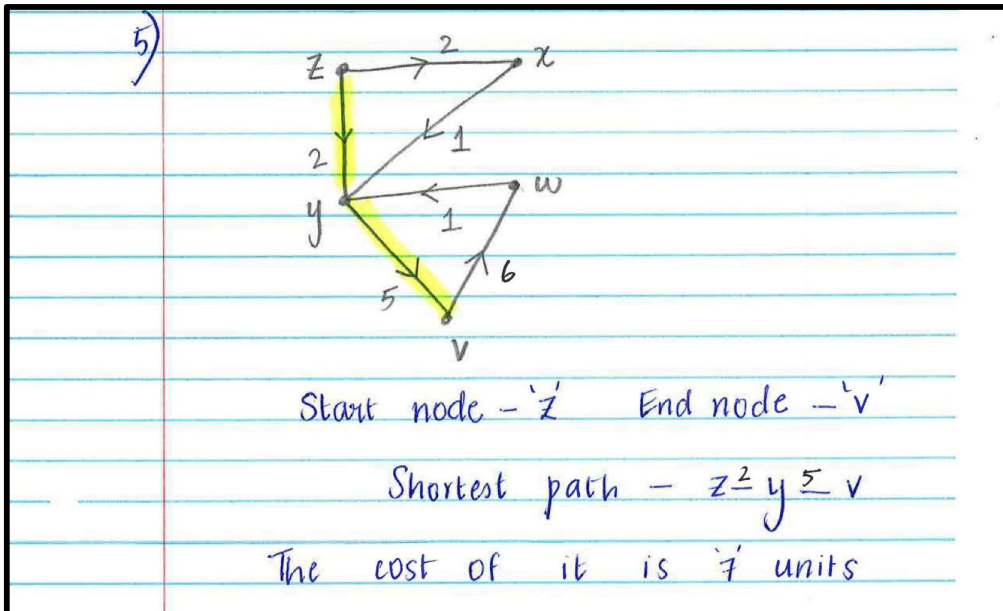 5)
z 2 x
1
2
y 1 w
5 6
v
Start node - 'z' End node - 'v'
Shortest path - z 2 y 5 v
The cost of it is '7' units